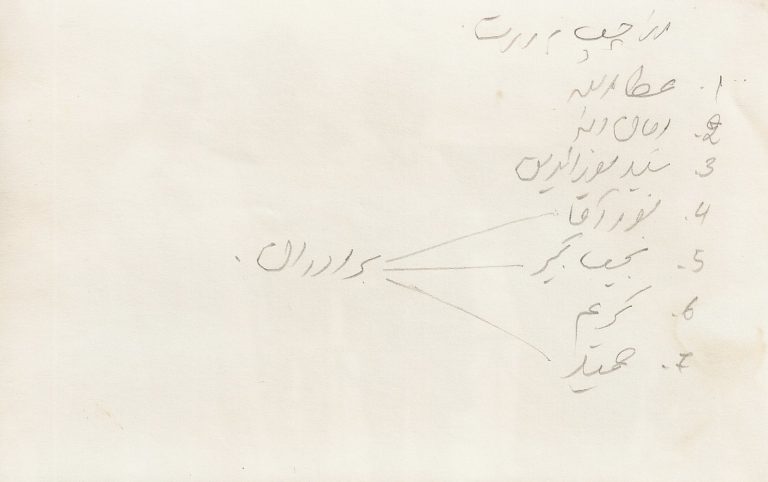 از چپ به راست
1. عطاءالله
2. امان الله
3. سید معزالدین
4. نور آقا
5. نجیب
برادران.
6. کریم
7. حمید